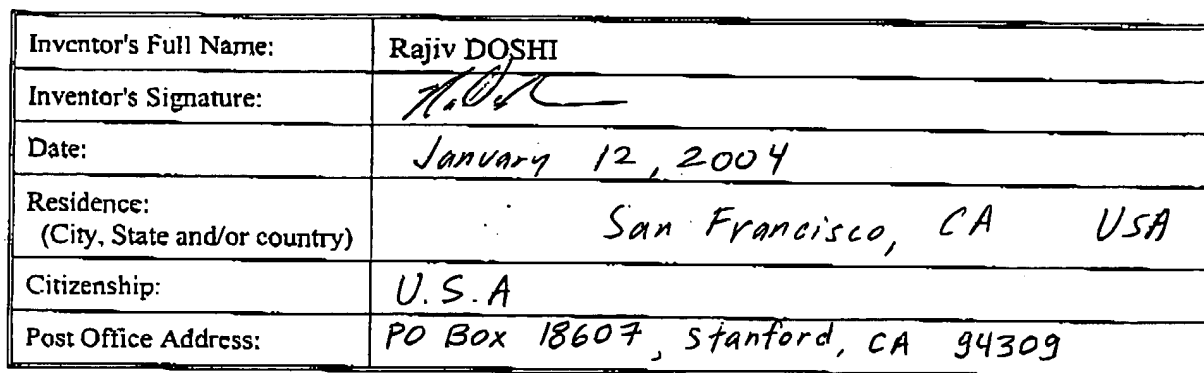 Inventor's Full Name: Rajiv DOSHI
Inventor's Signature:
Date: January 12, 2004
Residence:
(City, State and/or country) San Francisco, CA USA
Citizenship: U.S.A
Post Office Address: PO Box 18607, Stanford, CA 94309